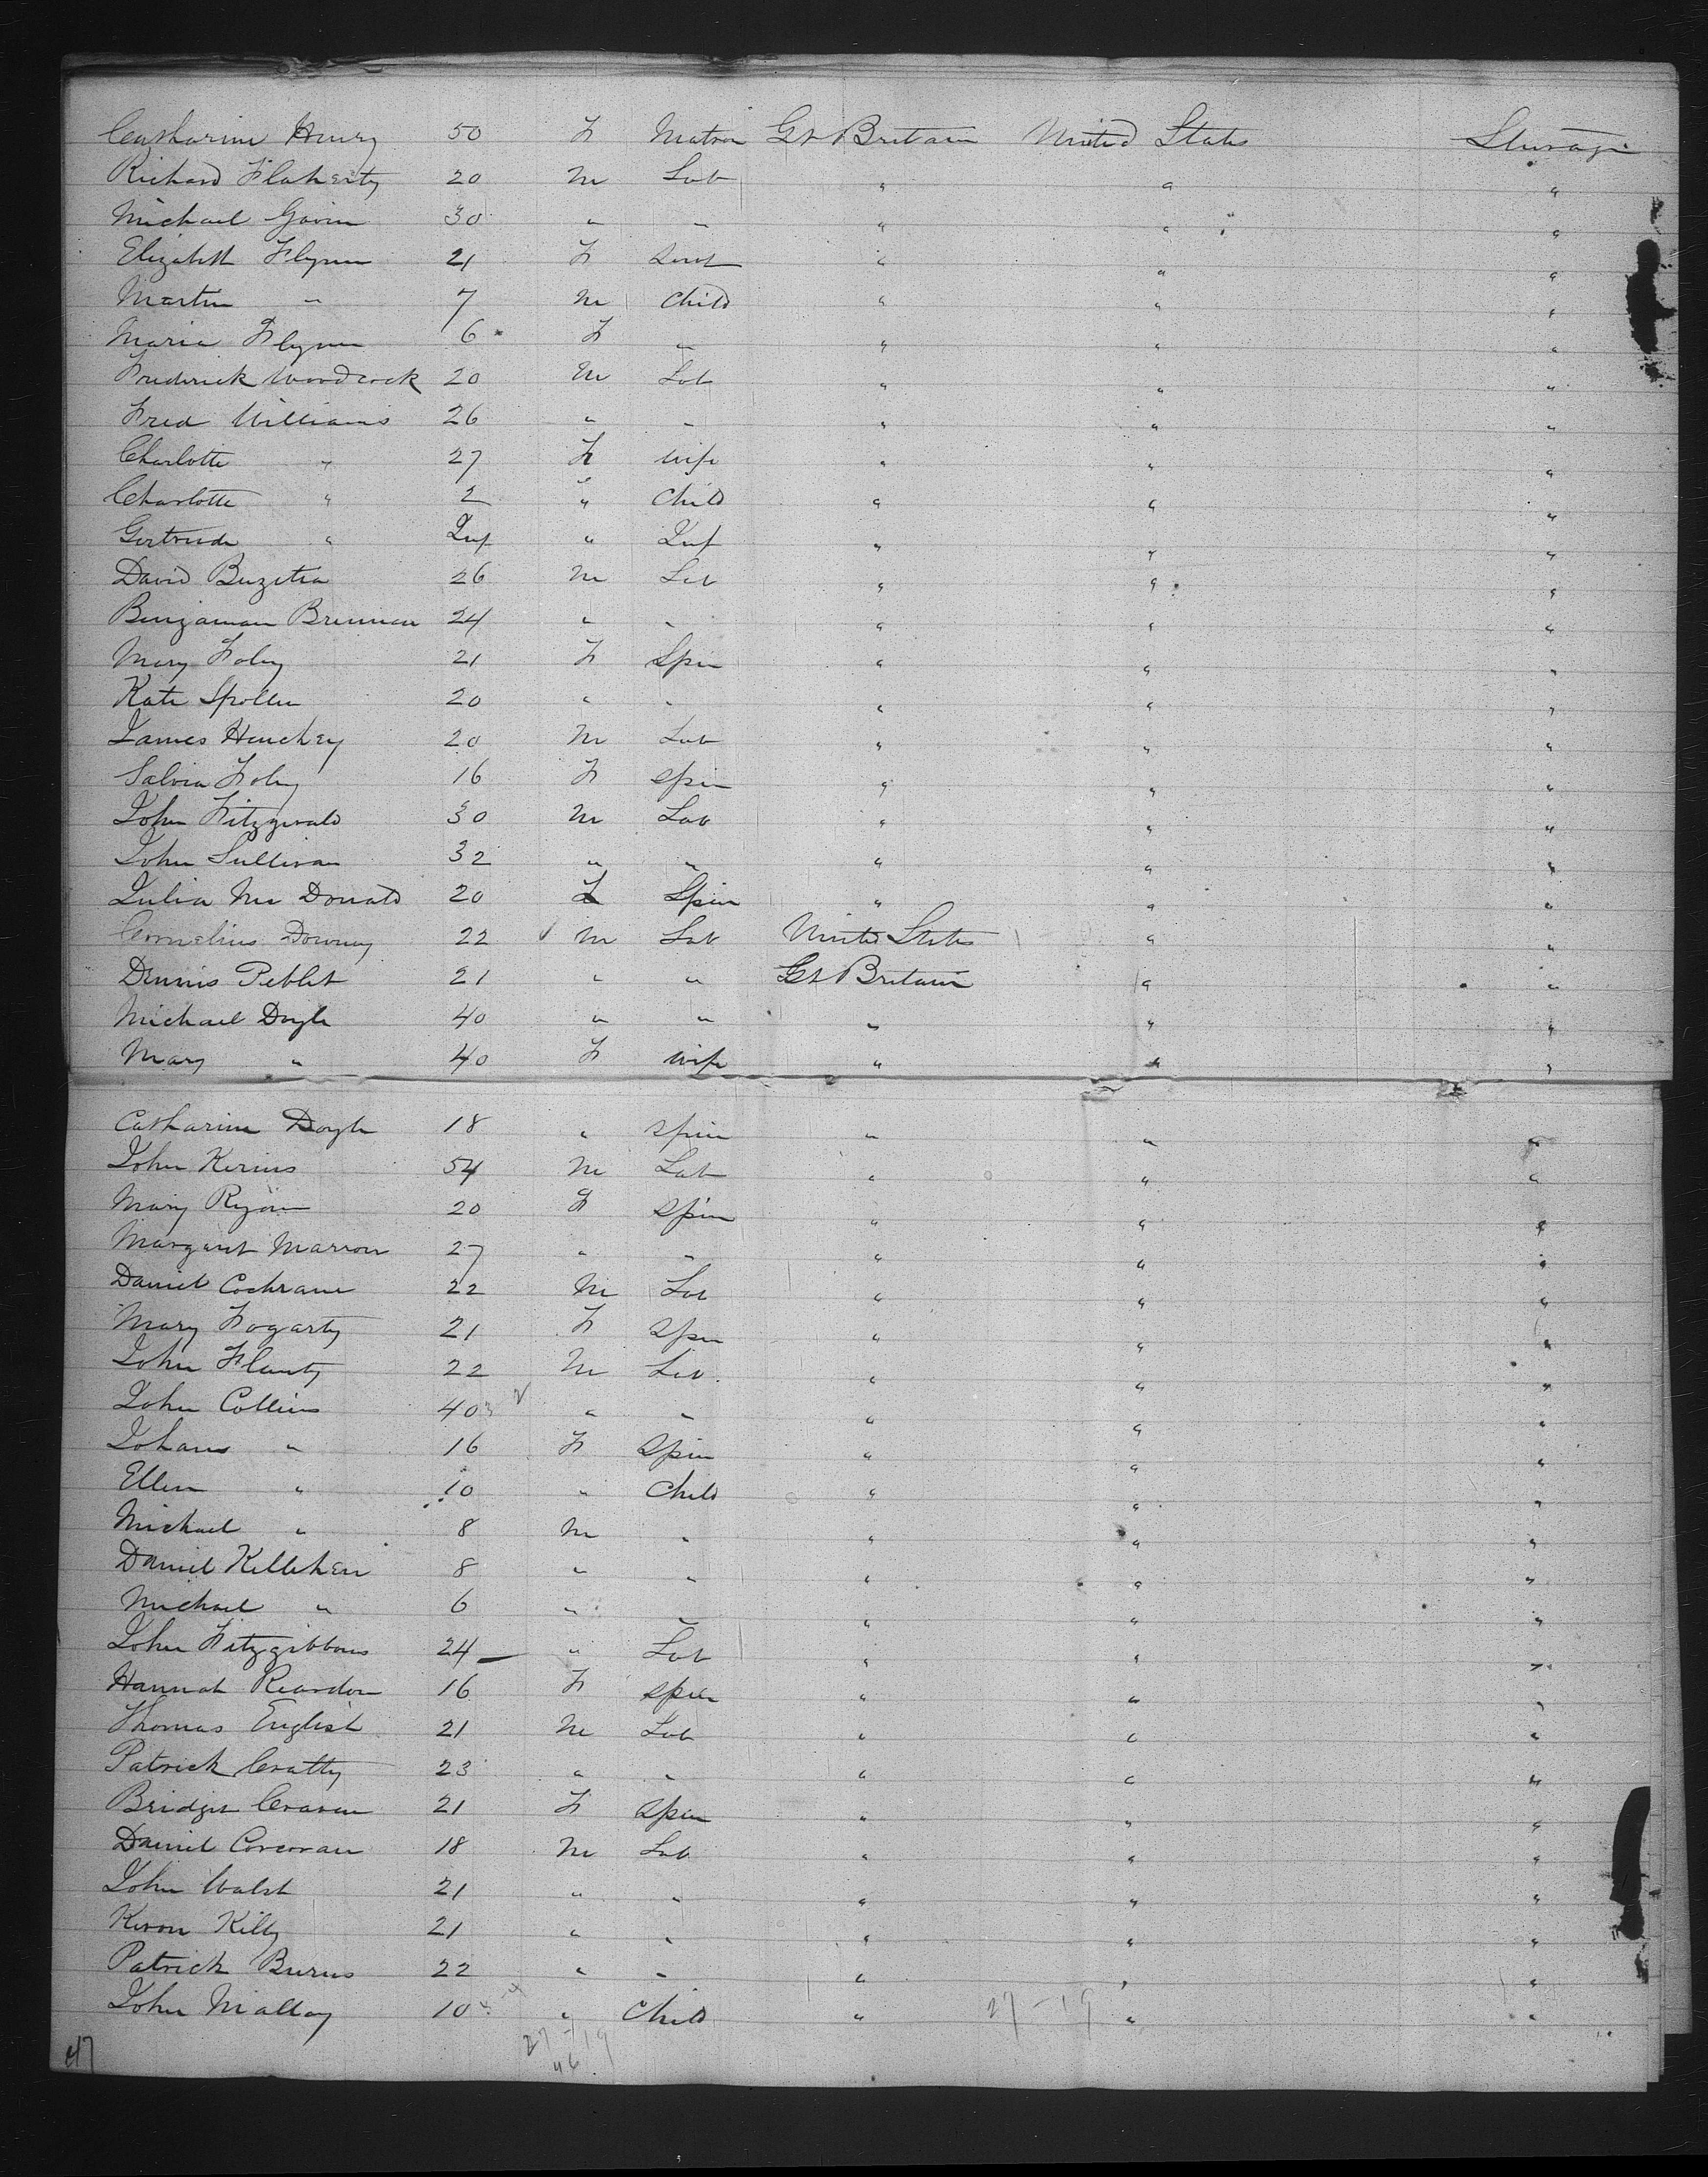 Catharine Henry 50 F Matron Gt Britain United States Steerage
Richard Flaherty 20 M Lab " " "
Michael Gavin 30 " " " " "
Elizabeth Flynn 21 F Servt " " "
Martin " 7 M Child " " "
Maria Flynn 6 F " " " "
Frederick Woodcock 20 M Lab " " "
Fred Williams 26 " " " " "
Charlotte " 27 F wife " " "
Charlotte " 2 " Child " " "
Gertrude " Inf " Inf " " "
David 26 M Lab " " "
Benjaman Brennan 24 " " " " "
Mary Foley 21 F Spin " " "
Kate Spollen 20 " " " " "
James Henchey 20 M Lab " " "
Foley 16 F Spin " " "
John Fitzgerald 30 M Lab " " "
John Sullivan 32 " " " " "
Julia Mc Donald 20 F Spin " " "
Cornelius Downey 22 M Lab United States " "
Dennis 21 " " Gt Britain " "
Michael Doyle 40 " " " " "
Mary " 40 F wife " " "
Catharine Doyle 18 " Spin " " "
John Kerins 54 M Lab " " "
Mary Ryan 20 F Spin " " "
Margaret Marron 27 " " " " "
Daniel Cochrane 22 M Lab " " "
Mary Fogarty 21 F Spin " " "
John 22 M Lab " " "
John Collins 40 " " " " "
" 16 F Spin " " "
Ellen " 10 " Child " " "
Michael " 8 M " " " "
Daniel Kellehen 8 " " " " "
Michael " 6 " " " " "
John Fitzgibbons 24 " Lab " " "
Hannah Reardon 16 F Spin " " "
Thomas English 21 M Lab " " "
Patrick Cratty 23 " " " " "
Bridget Craven 21 F Spin " " "
Daniel Corcoran 18 M Lab " " "
John Walsh 21 " " " " "
21 " " " " "
Patrick Burns 22 " " " " "
John Malloy 10 " Child " 27-19 " "
27-19
46
47